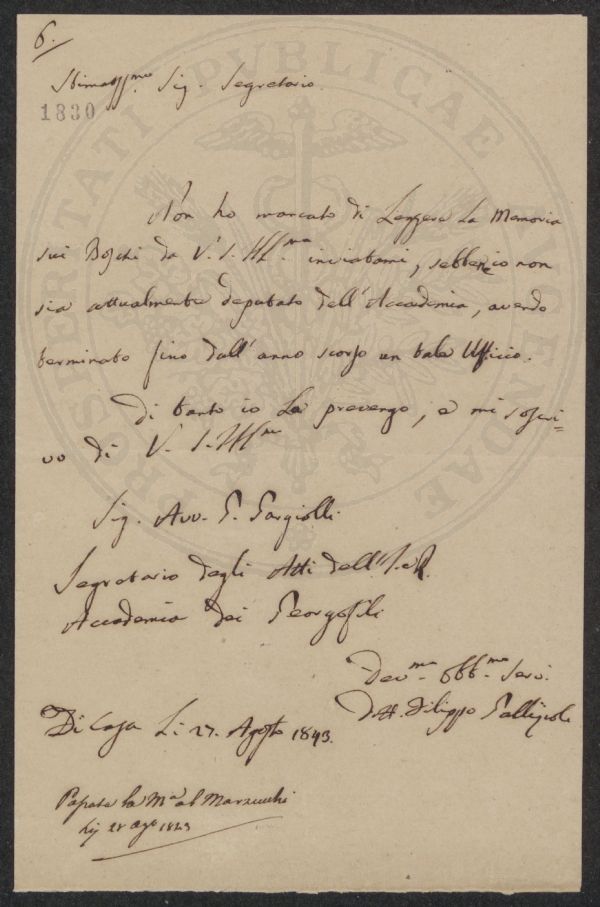 6.
Stimatiss.mo Sig. Segretario.
1830
Non ho mancato di Leggere La Memoria
sui Boschi da V. S. Ill.ma inviatami, sebbene io non
sia attualmente deputato dell'Accademia, avendo
terminato fino dall'anno scorso un tale Ufficio.
Di tanto io La prevengo, e mi soscri=
vo di V. S. Ill.ma
Sig. Avv. G.
Segretario degli Atti dell'I. e R.
Accademia dei Georgofili
Dev.mo Obb.mo Serv.
Dott. Filippo Gallizioli
Di Casa Li 27. Agosto 1843.
Passata la M.a al Marzucchi
li 28 ago 1843
PROSPERITATI PUBLICAE AUGENDAE